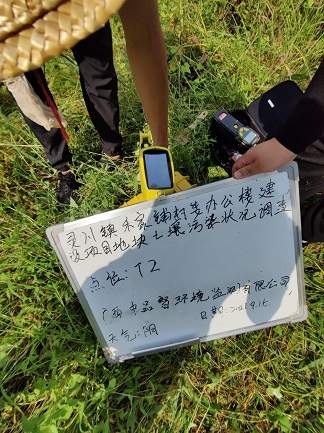 灵川镇禾家铺村委办公楼建
设项目地块土壤污染状况调查
点位：T2
广西中品智环境监测有限公司
天气：阴